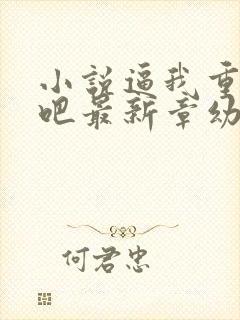 小说逼我重
吧最新章幼
何君忠